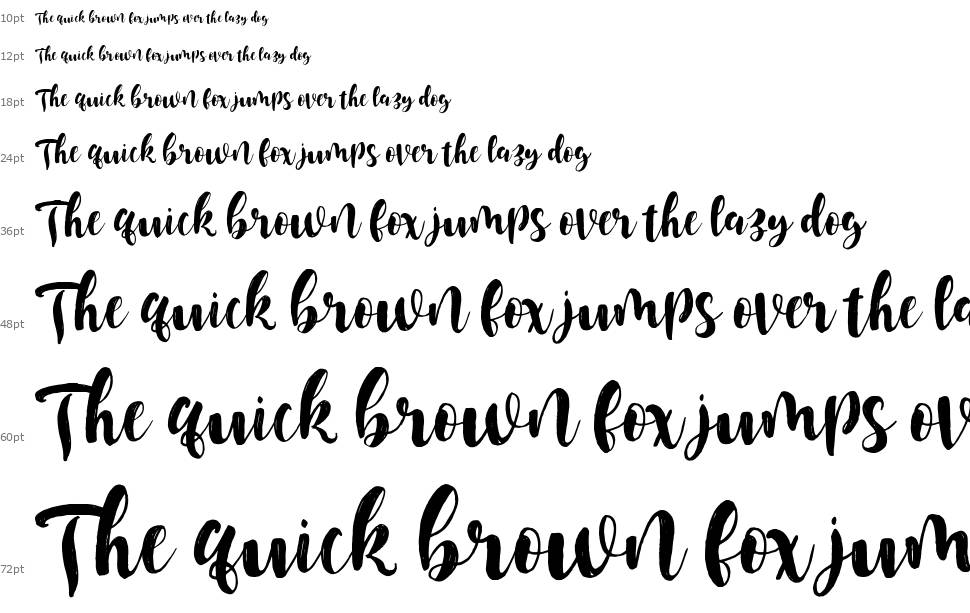 10pt The quick brown fox jumps over the lazy dog
12pt The quick brown fox jumps over the lazy dog
18pt The quick brown fox jumps over the lazy dog
24pt The quick brown fox jumps over the lazy dog
36pt The quick brown fox jumps over the lazy dog
48pt The quick brown fox jumps over the la
60pt The quick brown fox jumps ov
72pt The quick brown fox jum